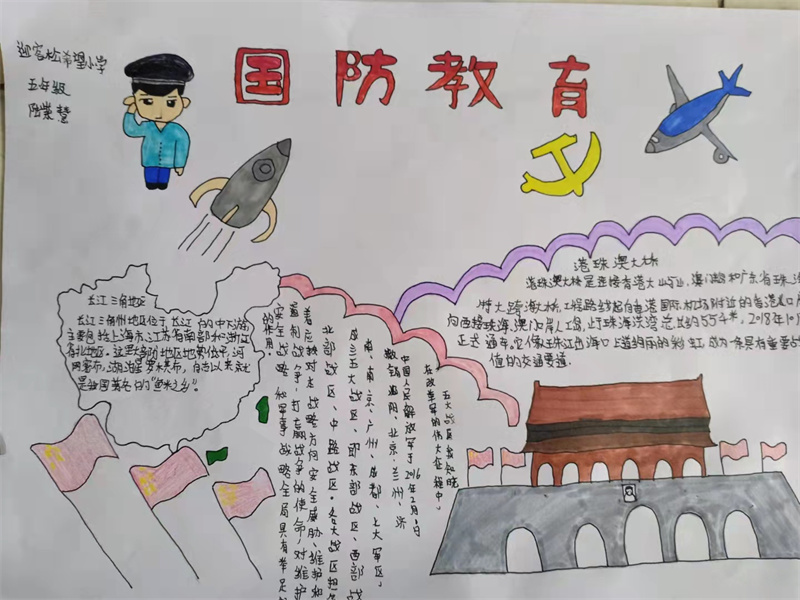 迎客松希望小学
五年级
国防教育
长江三角地区
长江三角州地区位于长江的中下游,
主要包括上海市、江苏省南部和浙江
省北地区。这里大部分地区地势低平,河
网密布,湖泊星罗棋布,自古以来就
是我国著名的“鱼米之乡”。
港珠澳大桥
港珠澳大桥是连接香港大屿山、澳门和广东省珠海
大跨海大桥,工程路线起自香港国际机场附近的香港口
向西接珠海、澳门口岸人工岛、止于珠海洪湾总长约55千米,2018年10月
正式通车。它像珠江出海口上道绚丽的彩虹,成为一条具有重要
值的交通要道.
五大战区
在改革军的伟大征程中。
中国人民解放军于2016年2月1日
沈阳、北京、兰州、济
南、南京、广州、成都、七大军区,
成立五大战区,即东部战区、西部战
北部战区、中部战区。各大战区担
着应对本战略方向安全威胁、维护和
遏制战争、打赢战争的使命,对维护
安全战略和军事战略全局具有举足
的作用。